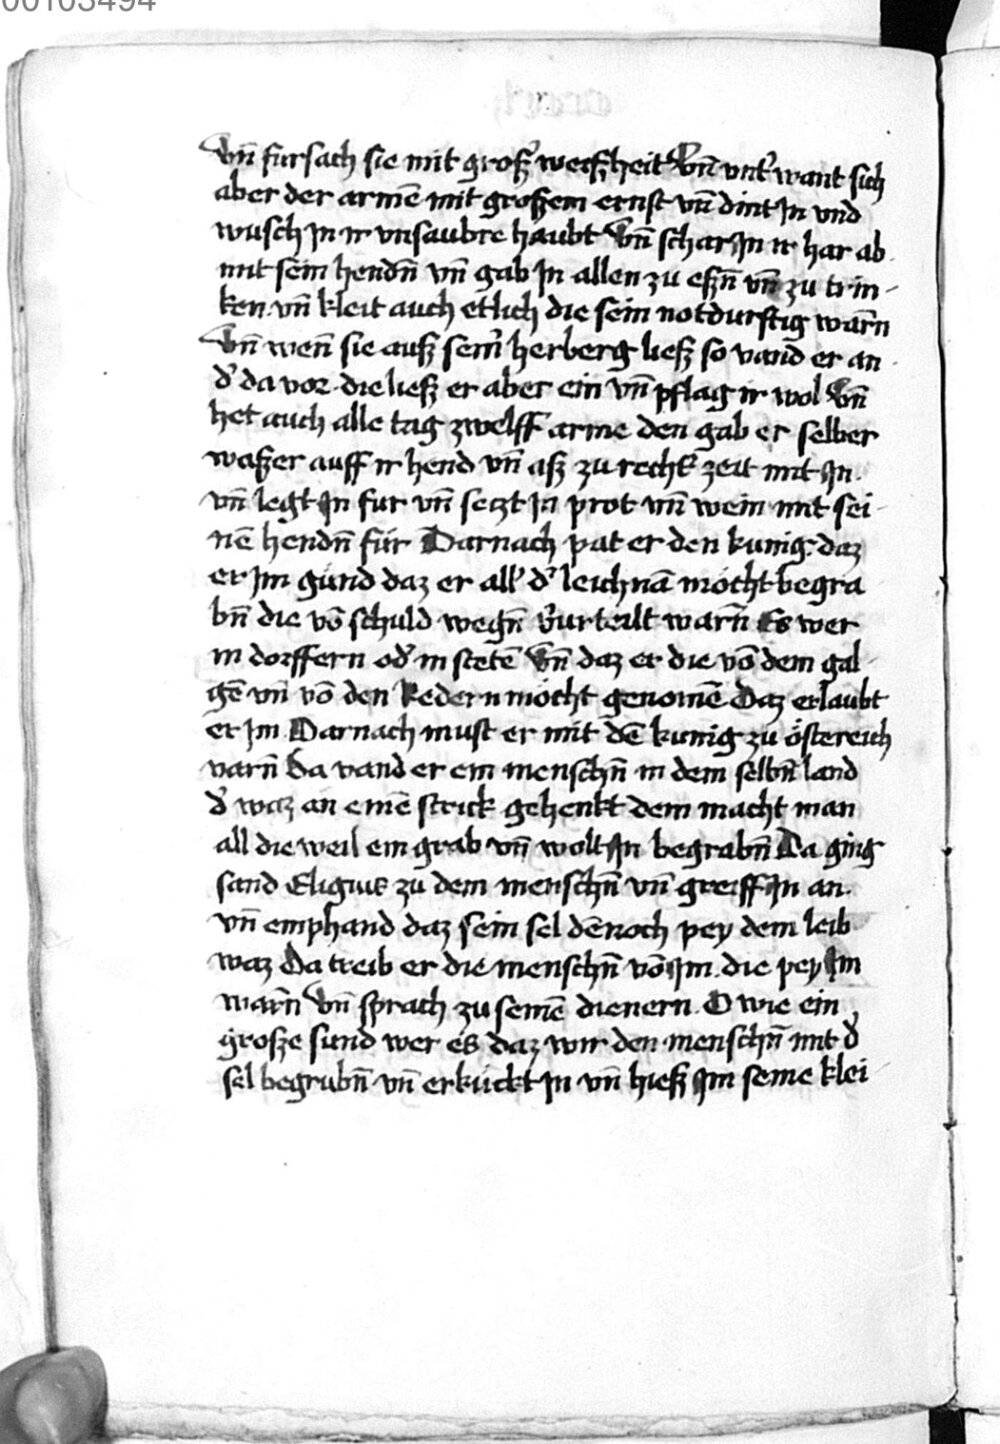 00103494
Vn̄ fursach sie mit groſz̉ weiſzheit Vn̄ vnt̉ want sich
aber der armē mit groſzem ernst vn̄ dint In vnd
wusch In ir vnsaubre haubt Vn̄ schar In ir har ab
mit sein hendn̄ vn̄ gab In allen zu eſzn̄ vn̄ zu trin-
ken vn̄ kleit auch etlich die sein notdurftig warn̄
Vn̄ wen̄ sie auſz sein̉ herberg lieſz so vand er an
d̉ da vor die lieſz er aber ein vn̄ pflag ir wol Vn̄
het auch alle tag zwelff arme den gab er selber
waſzer auff ir hend vn̄ aſz zu recht̉ zeit mit In
vn̄ legt In fur vn̄ setzt In prot vn̄ wein mit sei-
nē hendn̄ für Darnach pat er den kunig daz
er Im gund daz er all̉ d̉ leichnā möcht begra
bn̄ die vō schuld wegn̄ v̉urteilt warn̄ Es wer
in dorffern od̉ in stetē Vn̄ daz er die vō dem gal-
gē vn̄ vō den Redern möcht genomē Daz erlaubt
er Im Darnach must er mit dē kunig zu östereich
varn̄ Da vand er ein menschn̄ in dem selbn̄ land
d̉ waz an einē strick gehenkt dem macht man
all die weil ein grab vn̄ wolt In begrabn̄ Da ging
sand Eligius zu dem menschn̄ vn̄ greiff In an
vn̄ emphand daz sein sel dēnoch pey dem leib
waz Da treib er die menschn̄ vō Im die pey Im
warn̄ Vn̄ sprach zu seinē dienern O wie ein
groſze sund wer es daz wir den menschn̄ mit d̉
sel begrubn̄ vn̄ erkückt In vn̄ hieſz Im seine klei-